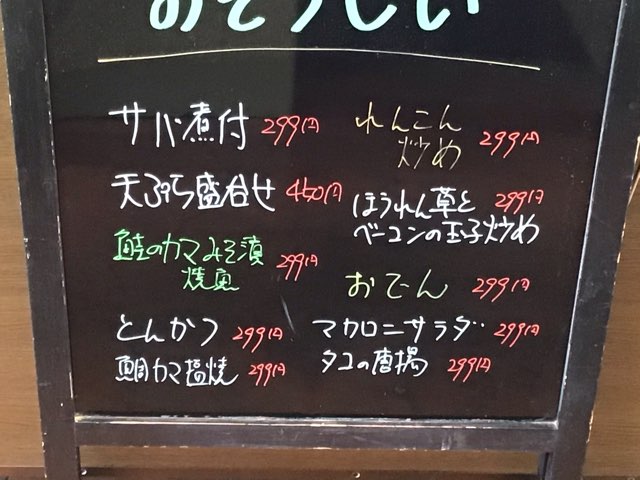 おそうじい
サバ煮付 299円
天ぷら盛合せ 450円
鮭のカマみそ漬
焼魚 299円
とんかつ 299円
鯛カマ塩焼 299円
れんこん
炒め 299円
ほうれん草と 299円
ベーコンの玉子炒め
おでん 299円
マカロニサラダ 299円
タコの唐揚 299円